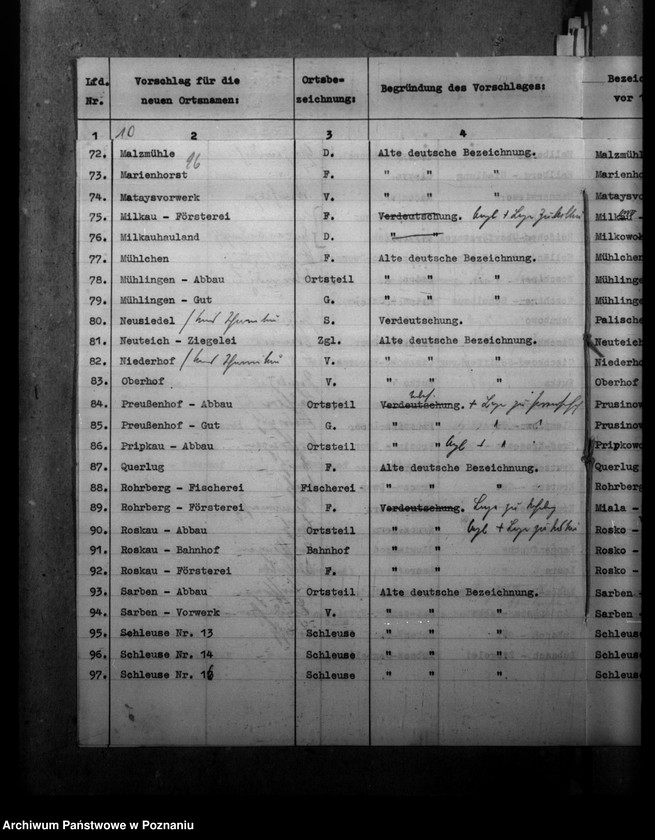 Lfd. Nr. Vorschlag für die neuen Ortsnamen: Ortsbe- zeichnung: Begründung des Vorschlages: Bezeic vor
1 10 2 3 4
96
72. Malzmühle D. Alte deutsche Bezeichnung. Malzmühl
73. Marienhorst F. " " " Marienho
74. Mataysvorwerk V. " " " Matayvo
75. Milkau - Försterei F. Verdeutschung. Milk
76. Milkauhauland D. " " Milkowo
77. Mühlchen F. Alte deutsche Bezeichnung. Mühlchen
78. Mühlingen - Abbau Ortsteil " " " Mühlinge
79. Mühlingen - Gut G. " " " Mühlinge
80. Neusiedel S. Verdeutschung. Palische
81. Neuteich - Ziegelei Zgl. Alte deutsche Bezeichnung. Neuteich
82. Niederhof V. " " " Niederho
83. Oberhof V. " " " Oberhof
84. Preußenhof - Abbau Ortsteil Verdeutschung. Prusinow
85. Preußenhof - Gut G. " " Prusinow
86. Pripkau - Abbau Ortsteil " " Pripkowo
87. Querlug F. Alte deutsche Bezeichnung. Querlug
88. Rohrberg - Fischerei Fischerei " " " Rohrberg
89. Rohrberg - Försterei F. Verdeutschung. Miala -
90. Roskau - Abbau Ortsteil " " Rosko -
91. Roskau - Bahnhof Bahnhof " " Rosko -
92. Roskau - Försterei F. " " Rosko -
93. Sarben - Abbau Ortsteil Alte deutsche Bezeichnung. Sarben -
94. Sarben - Vorwerk V. " " " Sarben -
95. Schleuse Nr. 13 Schleuse " " " Schleus
96. Schleuse Nr. 14 Schleuse " " " Schleus
97. Schleuse Nr. 16 Schleuse " " " Schleus
Archiwum Państwowe w Poznaniu